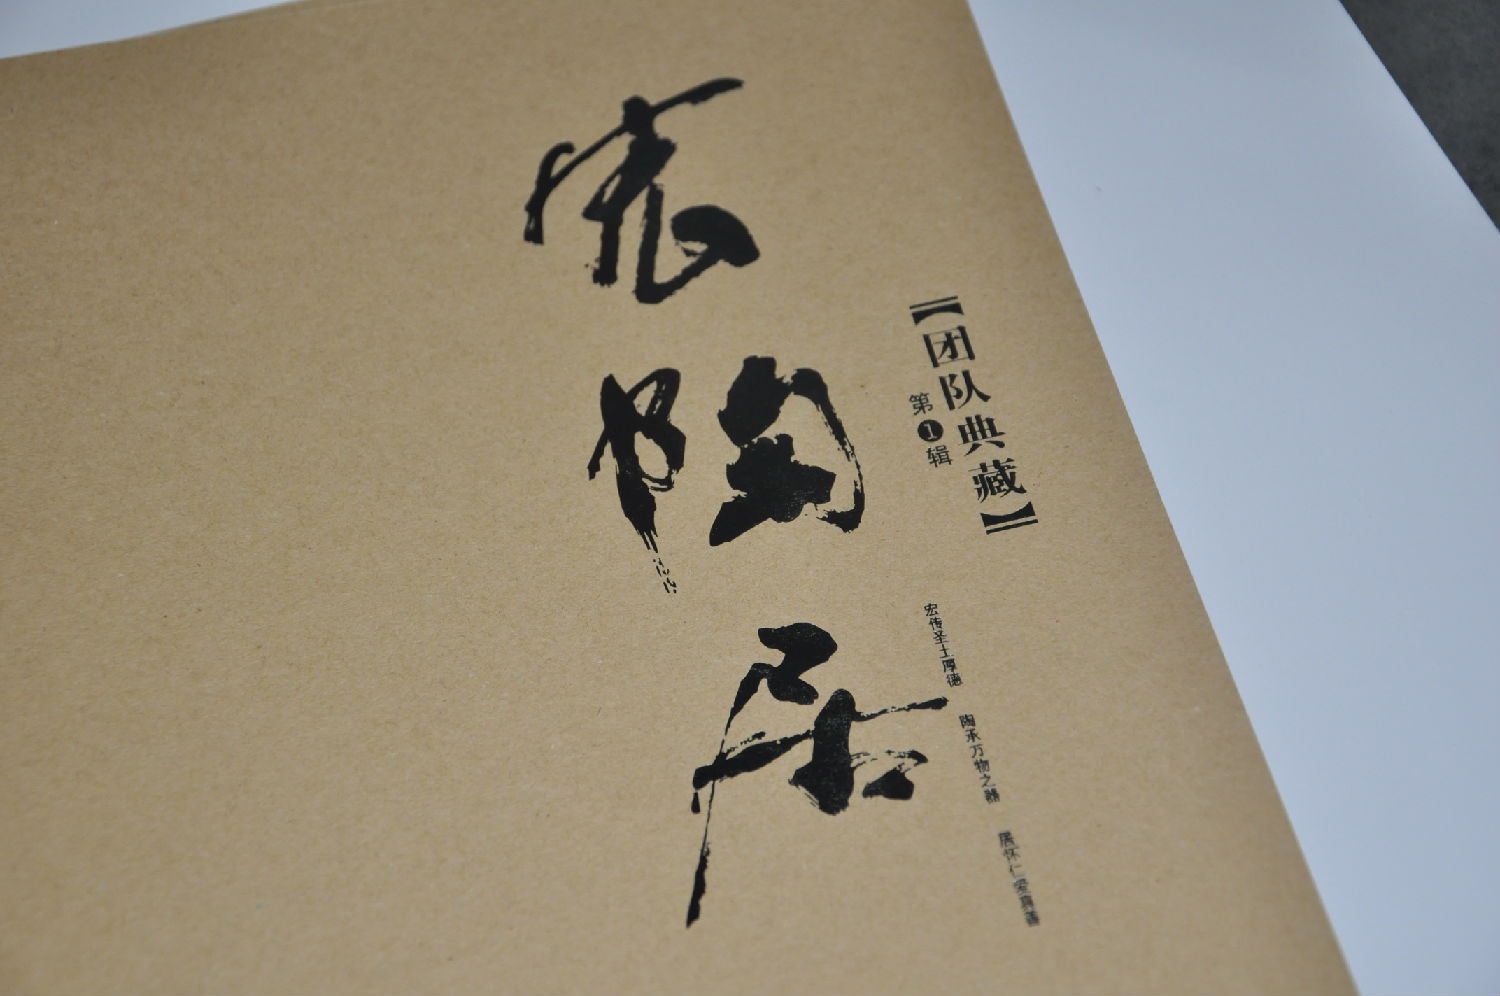 宏陶居
【团队典藏】
第1辑
宏传圣土厚德
陶承万物之器
居怀仁爱真善